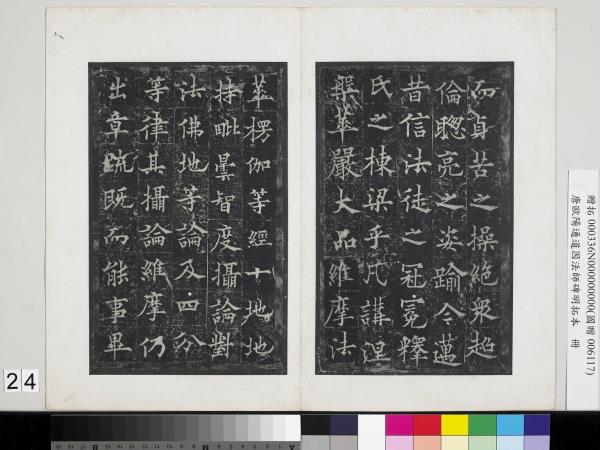 而貞苦之操絕衆超
倫聰亮之姿踰今邁
昔信法徒之冠冕釋
氏之棟梁乎凡講涅
槃華嚴大品維摩法
華楞伽等經十地地
持毗曇智度攝論對
法佛地等論及四分
等律其攝論維摩仍
出章疏既而能事畢
贈拓 000336N000000000(國贈 006117)
唐歐陽通道因法師碑明拓本 冊
24